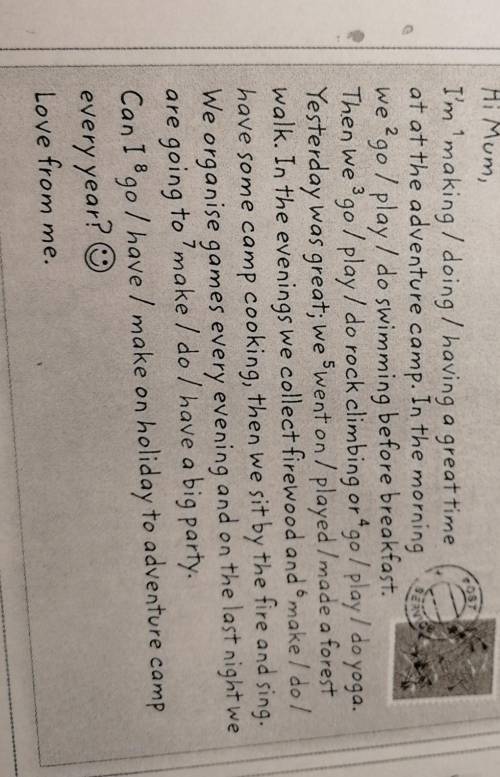 Hi Mum,
I'm ¹ making / doing / having a great time
at at the adventure camp. In the morning
we ² go / play / do swimming before breakfast.
Then we ³ go / play / do rock climbing or ⁴ go / play / do yoga.
Yesterday was great; we ⁵ went on / played / made a forest
walk. In the evenings we collect firewood and ⁶ make / do /
have some camp cooking, then we sit by the fire and sing.
We organise games every evening and on the last night we
are going to ⁷ make / do / have a big party.
Can I ⁸ go / have / make on holiday to adventure camp
every year? ☺
Love from me.
POST